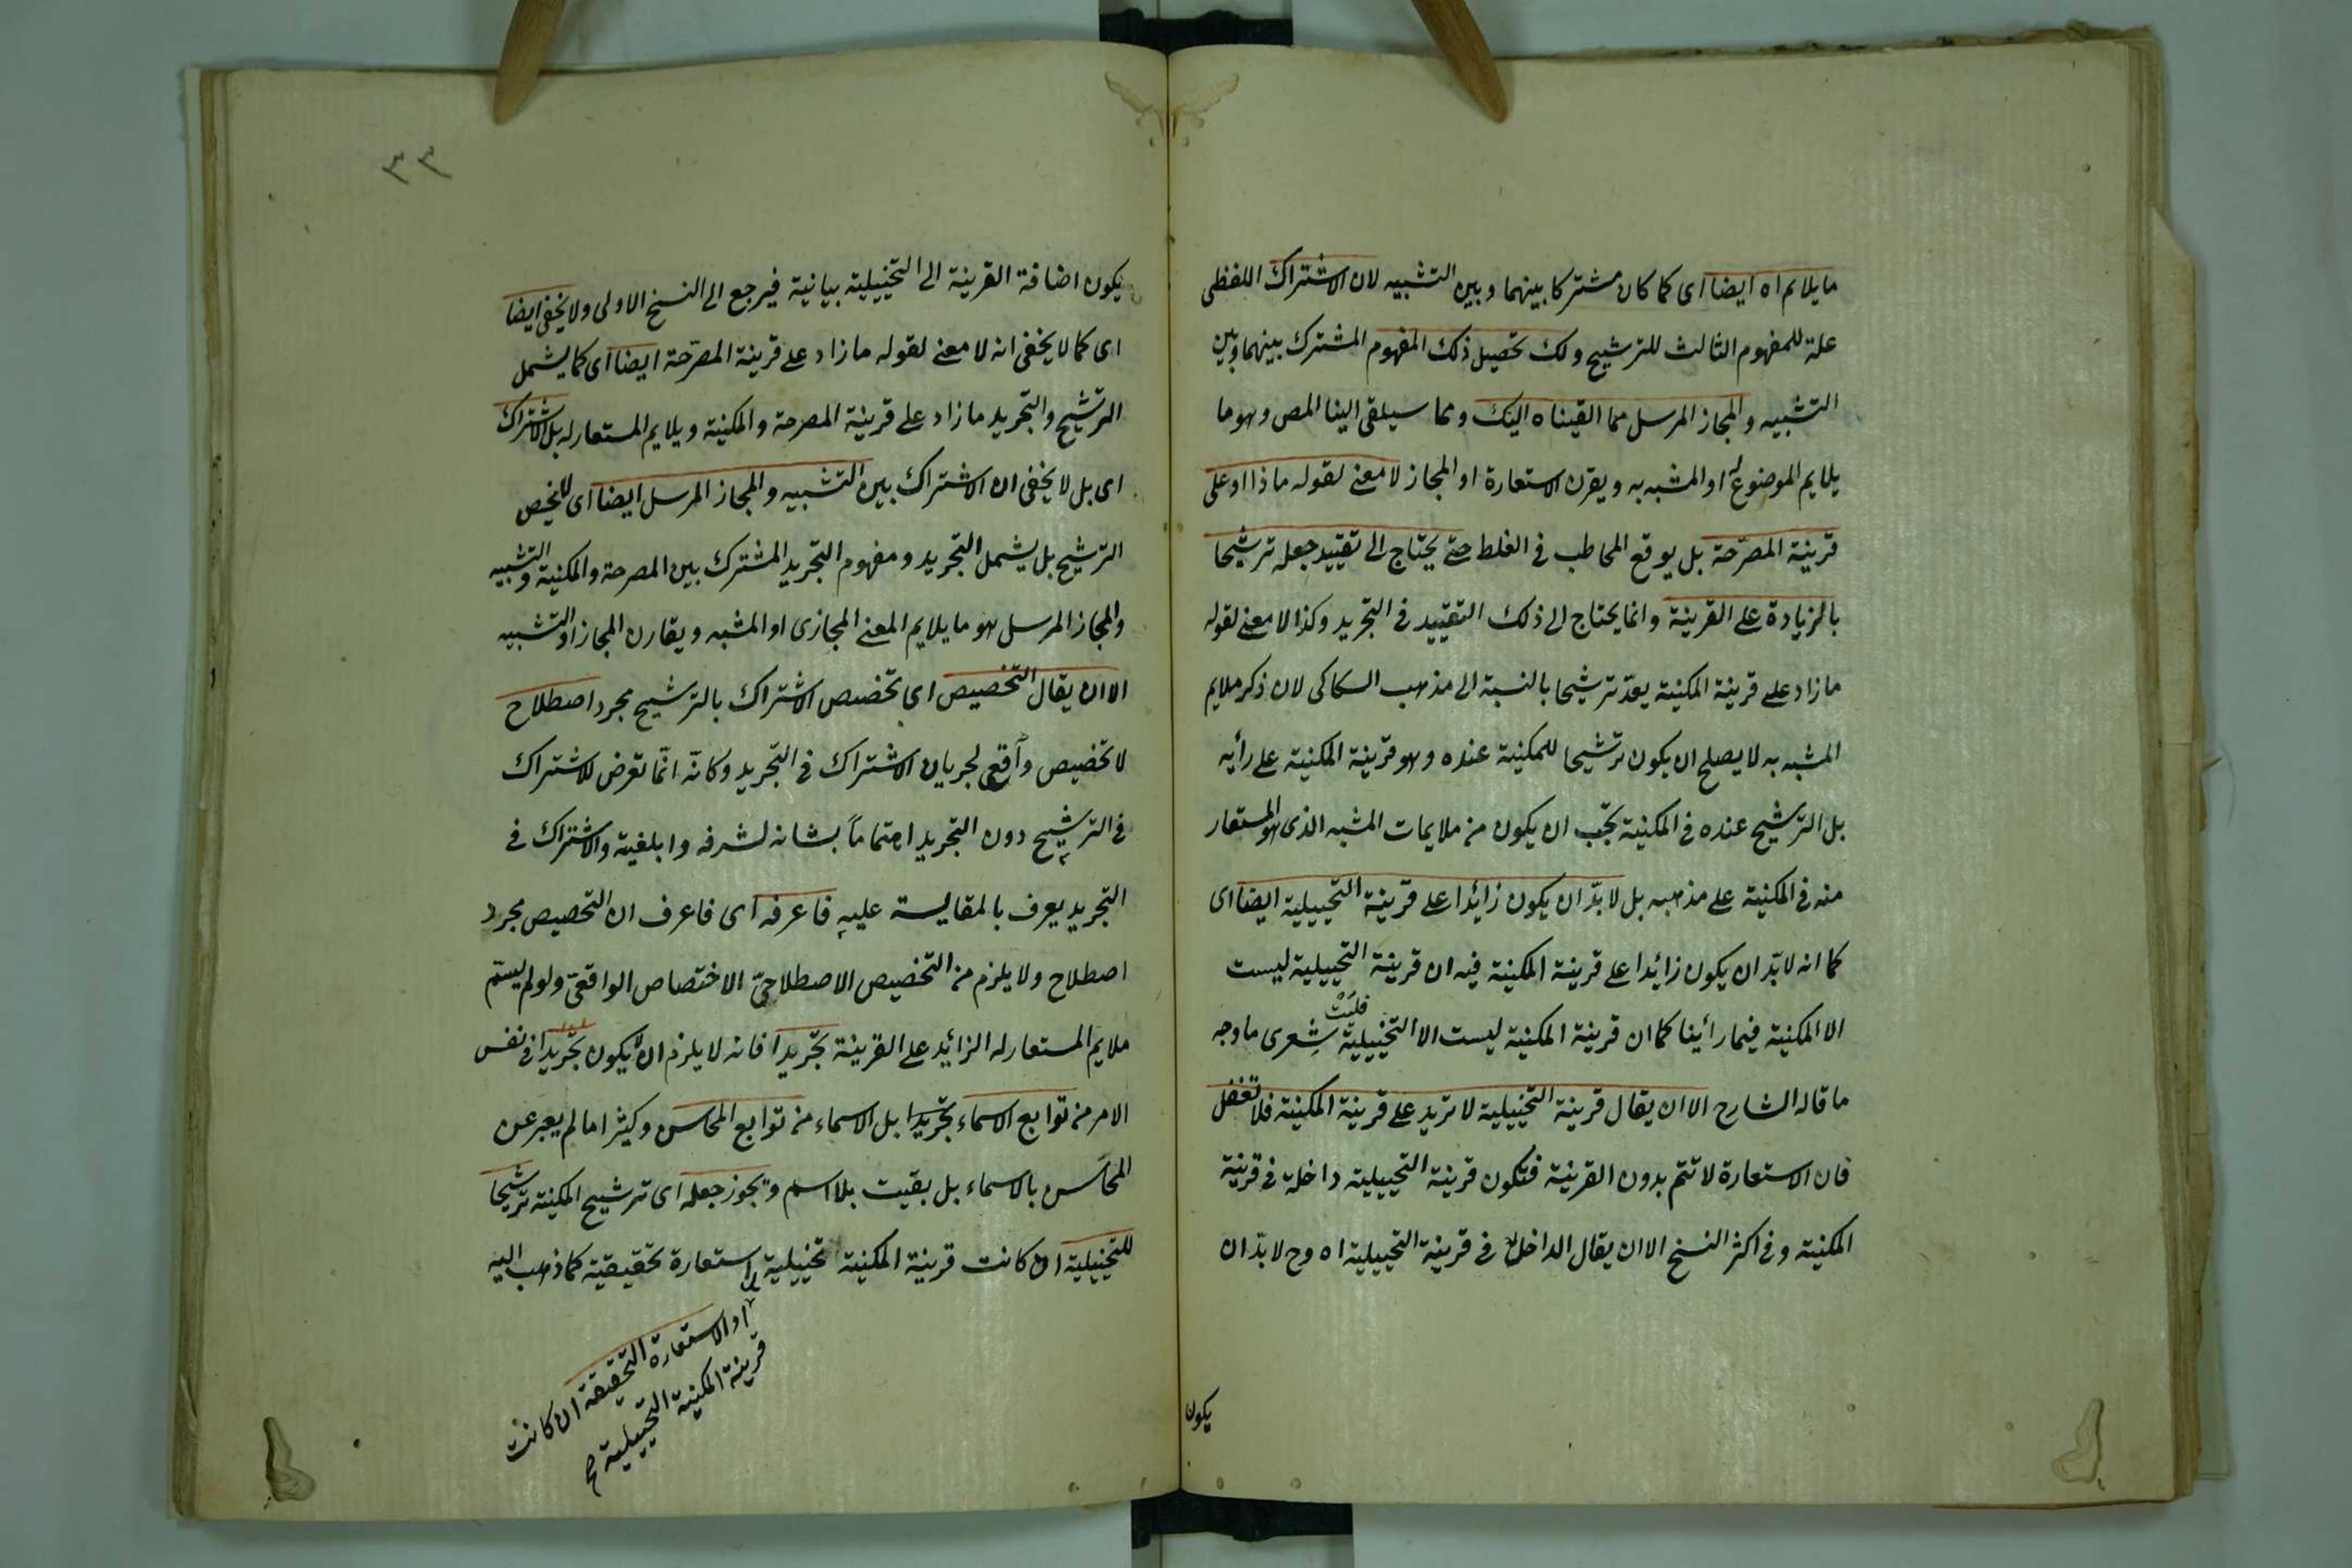 ما يلايم اه ايضا اى كما كان مشتركا بينهما وبين التشبيه لان الاشتراك اللفظى
علة للمفهوم الثالث للترشيح ولك تحصيل ذلك المفهوم المشترك بينهما وبين
التشبيه والمجاز المرسل مما القيناه اليك ومما سيلقى الينا المص وهو ما
يلايم الموضوع له او المشبه به ويقرن الاستعارة او المجاز لا معنى لقوله ماذا او على
قرينة المصرّحة بل يوقع المخاطب فى الغلط حتى يحتاج الى تقييد جعله ترشيحا
بالزيادة على القرينة وانما يحتاج الى ذلك التقييد فى التجريد وكذا لا معنى لقوله
ما زاد على قرينة المكنية يعدّ ترشيحا بالنسبة الى مذهب السكاكى لان ذكر ملايم
المشبه به لا يصلح ان يكون ترشيحا للمكنية عنده وهو قرينة المكنية على رأيه
بل الترشيح عنده فى المكنية يجب ان يكون من ملايمات المشبه الذى هو المستعار
منه فى المكنية على مذهبه بل لا بدّ ان يكون زائدا على قرينة التخييلية ايضا اى
كما انه لا بدّ ان يكون زائدا على قرينة المكنية فيه ان قرينة التخييلية ليست
الا المكنية فيما رأينا كما ان قرينة المكنية ليست الا التخييلية فليت شِعرى ما وجه
ما قاله الشارح الا ان يقال قرينة التخييلية لا تزيد على قرينة المكنية فلا تغفل
فان الاستعارة لا تتم بدون القرينة فتكون قرينة التخييلية داخلة فى قرينة
المكنية وفى اكثر النسخ الا ان يقال الداخل فى قرينة التخييلية اه وح لا بدّ ان
يكون
٣٣
يكون اضافة القرينة الى التخييلية بيانية فيرجع الى النسخ الاولى ولا يخفى ايضا
اى كما لا يخفى انه لا معنى لقوله ما زاد على قرينة المصرّحة ايضا اى كما يشمل
الترشيح والتجريد ما زاد على قرينة المصرحة والمكنية ويلايم المستعار له بل الاشتراك
اى بل لا يخفى ان الاشتراك بين التشبيه والمجاز المرسل ايضا اى لا يخص
الترشيح بل يشمل التجريد ومفهوم التجريد المشترك بين المصرحة والمكنية والتشبيه
والمجاز المرسل هو ما يلايم المعنى المجازى او المشبه ويقارن المجاز او التشبيه
الا ان يقال التخصيص اى تخصيص الاشتراك بالترشيح مجرد اصطلاح
لا تخصيص واقعى لجريان الاشتراك فى التجريد وكانّه انّما تعرض للاشتراك
فى الترشيح دون التجريد اهتماماً بشانه لشرفه وابلغيته والاشتراك فى
التجريد يعرف بالمقايسة عليه فاعرفه اى فاعرف ان التخصيص مجرد
اصطلاح ولا يلزم من التخصيص الاصطلاحىّ الاختصاص الواقعىّ ولو لم يسمّ
ملايم المستعار له الزائد على القرينة تجريدا فانه لا يلزم ان لا يكون تجريدا فى نفس
الامر من توابع الاسماء تجريدا بل الاسماء من توابع المحاسن وكثيرا ما لم يعبر عن
المحاسن بالاسماء بل بقيت بلا اسم ويجوز جعله اى ترشيح المكنية ترشيحا
للتخييلية ان كانت قرينة المكنية تخييلية استعارة تحقيقية كما ذهب اليه
او الاستعارة التحقيقية ان كانت
قرينة المكنية التخييلية